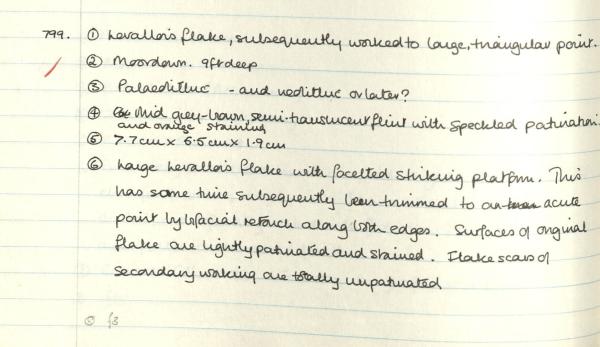 799. ① Levallois flake, subsequently worked to large, triangular point.
② Moordown. 9ft deep
③ Palaeolithic - and neolithic or later?
④ Mid grey-brown, semi-translucent flint with speckled patination.
and orange staining
⑤ 7.7cm x 6.5cm x 1.9cm
⑥ Large Levallois flake with facetted striking platform. This
has some time subsequently been trimmed to an acute
point by bifacial retouch along both edges. Surfaces of original
flake are lightly patinated and stained. Flake scars of
secondary working are totally unpatinated
f3